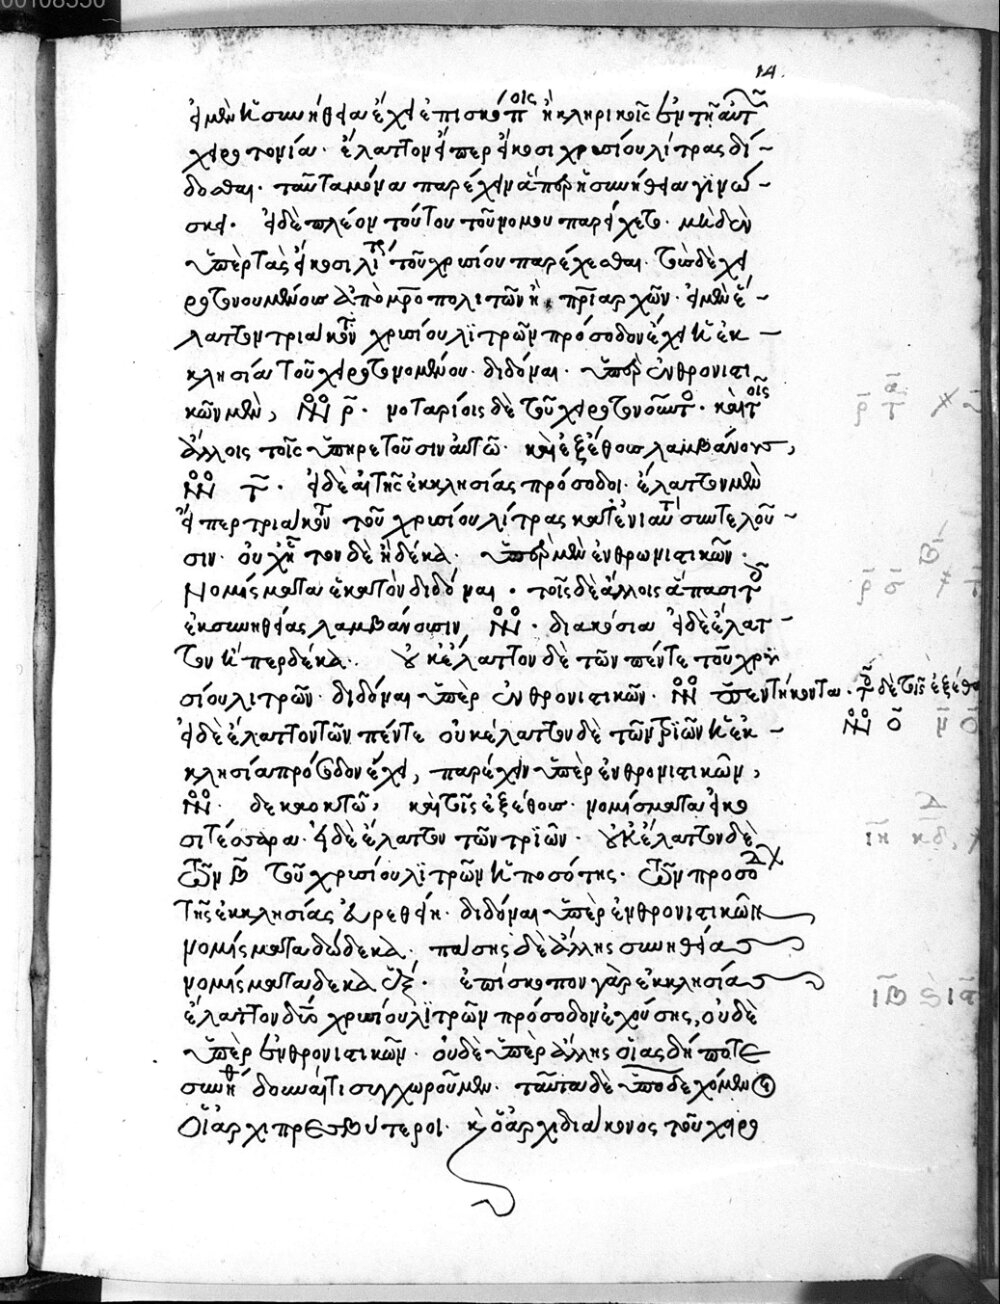 14.
εἰ μὲν ἡ συνήθεια ἔχει ἐπισκόποις ἢ κληρικοῖς ἐν τῇ αὐτ
χειροτονία· ἔλαττον εἴπερ εἴκοσι χρυσίου λίτρας δί-
δοσθαι· ταῦτα μόνα παρέχειν ἅπερ ἡ συνήθεια γϊνώ-
σκει· εἰ δὲ πλέον τούτου τοῦ νόμου παρείχετο· μηδὲν
ὑπὲρ τὰς εἴκοσι λίτρας τοῦ χρυσίου παρέχεσθαι· τοῖς δὲ χει
ροτονουμένοις ἀπὸ μροπολιτῶν ἢ πριαρχῶν· εἰ μὲν ἔ-
λαττον τριάκοντ χρυσίου λϊτρῶν πρόσοδον ἔχει ἡ ἐκ-
κλησία τοῦ χειροτονομένου· διδόναι· ὑπὲρ ἐνθρονιστι
κῶν μὲν, ΝΝ ρ̄· νοταρίοις δὲ τοῦ χειροτονοῦντ· καὶ τοῖς
ἄλλοις τοῖς ὑπηρετοῦσιν αὐτῶ· καὶ ἐξ ἔθους λαμβάνουσ,
ΝΝ τ̄· εἰ δὲ αἱ τῆς ἐκκλησίας πρόσοδοι· ἔλαττον μὲν
εἴπερ τριάκοντ τοῦ χρυσίου λίτρας κατ' ἐνιαυτ συντελοῦ-
σιν· οὐχ ἧττον δὲ ἢ δέκα· ὑπὲρ μὲν ἐνθρωνιστικῶν·
Νομίσματα ἑκατὸν διδόναι· τοῖς δὲ ἄλλοις ἅπασι τοῖς
ἐκ συνηθείας λαμβάνουσιν, ΝΝ· διακόσια εἰ δὲ ἔλατ-
τον ἤπερ δέκα· οὐκ ἔλαττον δὲ τῶν πέντε τοῦ χρυ
σίου λιτρῶν· διδόναι ὑπὲρ ἐνθρονιστικῶν· ΝΝ πεντήκοντα· τοῖς δὲ τοῖς ἐξ ἔθους
ΝΝ ο̄
εἰ δὲ ἔλαττον τῶν πέντε οὐκ έλαττον δὲ τῶν τριῶν ἡ ἐκ-
κλησία πρόσοδον ἔχει, παρέχειν ὑπὲρ ἐνθρονιστικῶν,
ΝΝ· δεκαοκτῶ, καὶ τοῖς ἐξ ἔθους· νομίσματα εἰκο
σιτέσσαρα· εἰ δὲ ἔλαττον τῶν τριῶν· οὐκ ἔλαττον δὲ
τῶν β̄ τοῦ χρυσίου λϊτρῶν ἡ ποσότης· τῶν προσόδ
τῆς ἐκκλησίας εὑρεθείη· διδόναι ὑπὲρ ἐνθρονιστικῶν
νομίσματα δώδεκα· πάσης δὲ ἄλλης συνηθείας
νομίσματα δεκαὲξ· ἐπίσκοπον γὰρ ἐκκλησίας
ἔλαττον δύο χρυσίου λϊτρῶν πρόσοδον ἐχούσης, οὐδὲ
ὑπὲρ ἐνθρονιστικῶν· οὐδὲ ὑπὲρ ἄλλης οἵας δήποτε
συνηθ δοῦναί τι συγχωροῦμεν· ταῦτα δὲ ὑποδεχόμεν
Οἱ ἀρχιπρεσβύτεροι· κ ὁ ἀρχιδιάκονος τοῦ χειρο